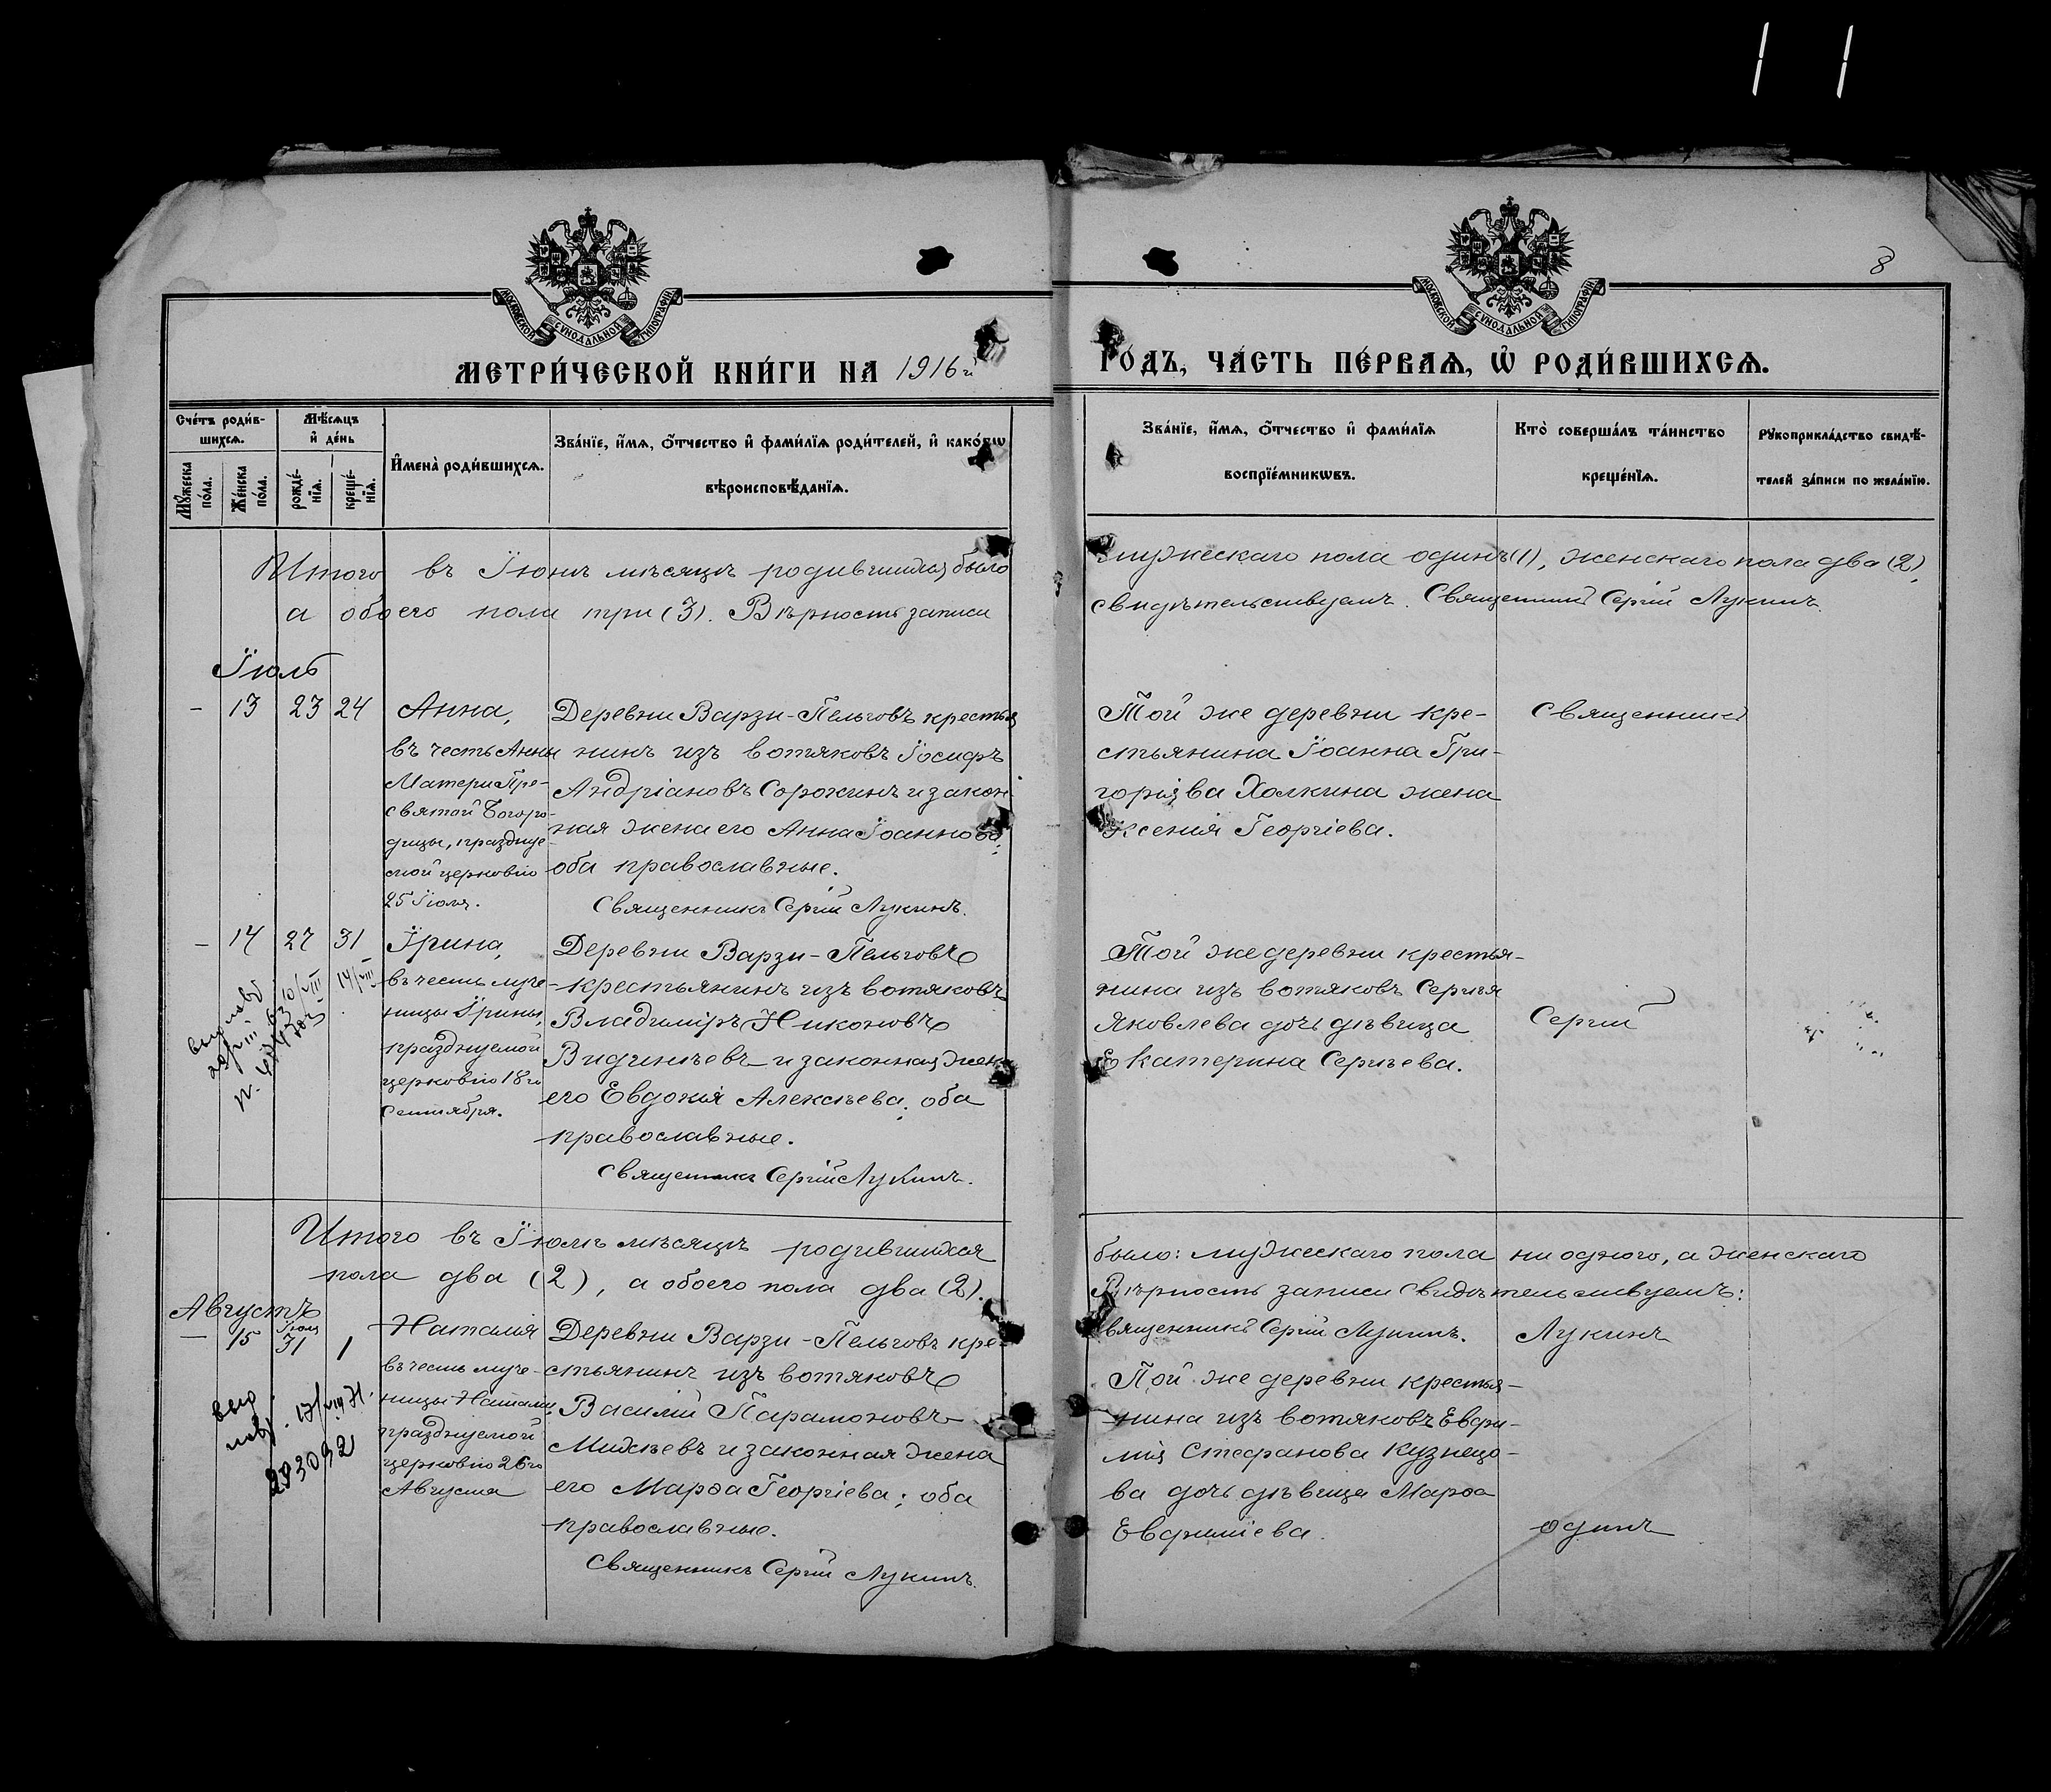 8
МОСКОВСКОЙ СѴНОДАЛЬНОЙ ТИПОГРАФІИ
МОСКОВСКОЙ СѴНОДАЛЬНОЙ ТИПОГРАФІИ
МЕТРИ́ЧЕСКОЙ КНИ́ГИ НА 1916й
ГО́ДЪ, ЧА́СТЬ ПЕ́РВАѦ, Ѡ҆ РОДИ́ВШИХСѦ.
Сче́тъ роди́в-
шихсѧ.
Мꙋ́жеска по́ла.
Же́нска по́ла.
Мѣ́сѧцъ
и҆ де́нь
рожде́-
нїѧ.
креще́-
нїѧ.
И҆мена̀ роди́вшихсѧ.
Зва́нїе, и҆́мѧ, ѻ҆́тчество и҆ фами́лїѧ роди́телей, и҆ како́гѡ
вѣроисповѣ́данїѧ.
Зва́нїе, и҆́мѧ, ѻ҆́тчество и҆ фами́лїѧ
воспрїе́мникѡвъ.
Кто̀ соверша́лъ та́инство
креще́нїѧ.
Рꙋкоприкла́дство свидѣ́-
телей за́писи по жела́нїю.
Итого въ Іюнѣ мѣсяцѣ родившихся было
мужескаго пола одинъ (1), женскаго пола два (2),
а обоего пола три (3). Вѣрность записи
свидѣтельствуемъ. Священникъ Сергій Лукинъ.
Іюль
- 13 23 24
Анна,
въ честь Анны
Матери Пре-
святой Богоро-
дицы, праздну-
емой церковію
25 Іюля.
Деревни Варзи-Пельговъ крестья
нинъ изъ вотяковъ Іосифъ
Андріановъ Сорокинъ и закон
ная жена его Анна Іоаннова;
оба православные.
Священникъ Сергій Лукинъ.
Той же деревни кре-
стьянина Іоанна Гри-
горіева Холкина жена
Ксенія Георгіева.
Священникъ
- 14 27 31
10/VIII
14/VIII
Ірина,
въ честь муче-
ницы Ирины,
празднуемой
церковію 18го
Сентября.
Деревни Варзи-Пельговъ
крестьянинъ изъ вотяковъ
Владиміръ Никоновъ
Видинѣевъ и законная жена
его Евдокія Алексѣева; оба
православные.
Священникъ Сергій Лукинъ.
Той же деревни крестья-
нина изъ вотяковъ Сергѣя
Яковлева дочь дѣвица
Екатерина Сергѣева.
Сергій
Итого въ Іюлѣ мѣсяцѣ родившихся
было: мужескаго пола ни одного, а женскаго
пола два (2), а обоего пола два (2).
Вѣрность записи свидѣтельствуемъ:
Священникъ Сергій Лукинъ.
Лукинъ
Августъ
- 15 Іюля 31 1
Наталія
въ честь муче-
ницы Наталіи,
празднуемой
церковію 26го
Августа
Деревни Варзи-Пельговъ кре-
стьянинъ изъ вотяковъ
Василій Парамоновъ
Михѣевъ и законная жена
его Марѳа Георгіева; оба
православные.
Священникъ Сергій Лукинъ.
Той же деревни крестья-
нина изъ вотяковъ Евфи-
мія Стефанова Кузнецо-
ва дочь дѣвица Марѳа
Евфиміева.
одинъ